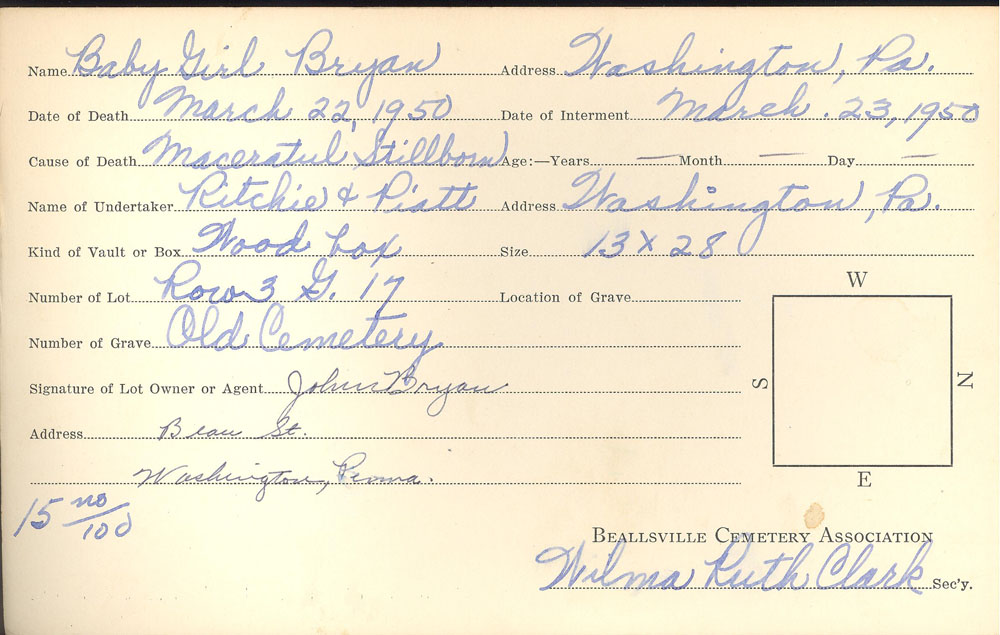 Name Baby Girl Bryan Address Washington, Pa.
Date of Death March 22, 1950 Date of Interment March. 23, 1950
Cause of Death Maceratul Stillborn Age:—Years — Month — Day —
Name of Undertaker Ritchie & Piatt Address Washington, Pa.
Kind of Vault or Box Wood box Size 13 x 28
Number of Lot Row 3 G. 17 Location of Grave
W
Number of Grave Old Cemetery
Signature of Lot Owner or Agent John Bryan
S N
Address Beau St.
Washington, Penna.
E
15 no/100
Beallsville Cemetery Association
Wilma Ruth Clark Sec'y.